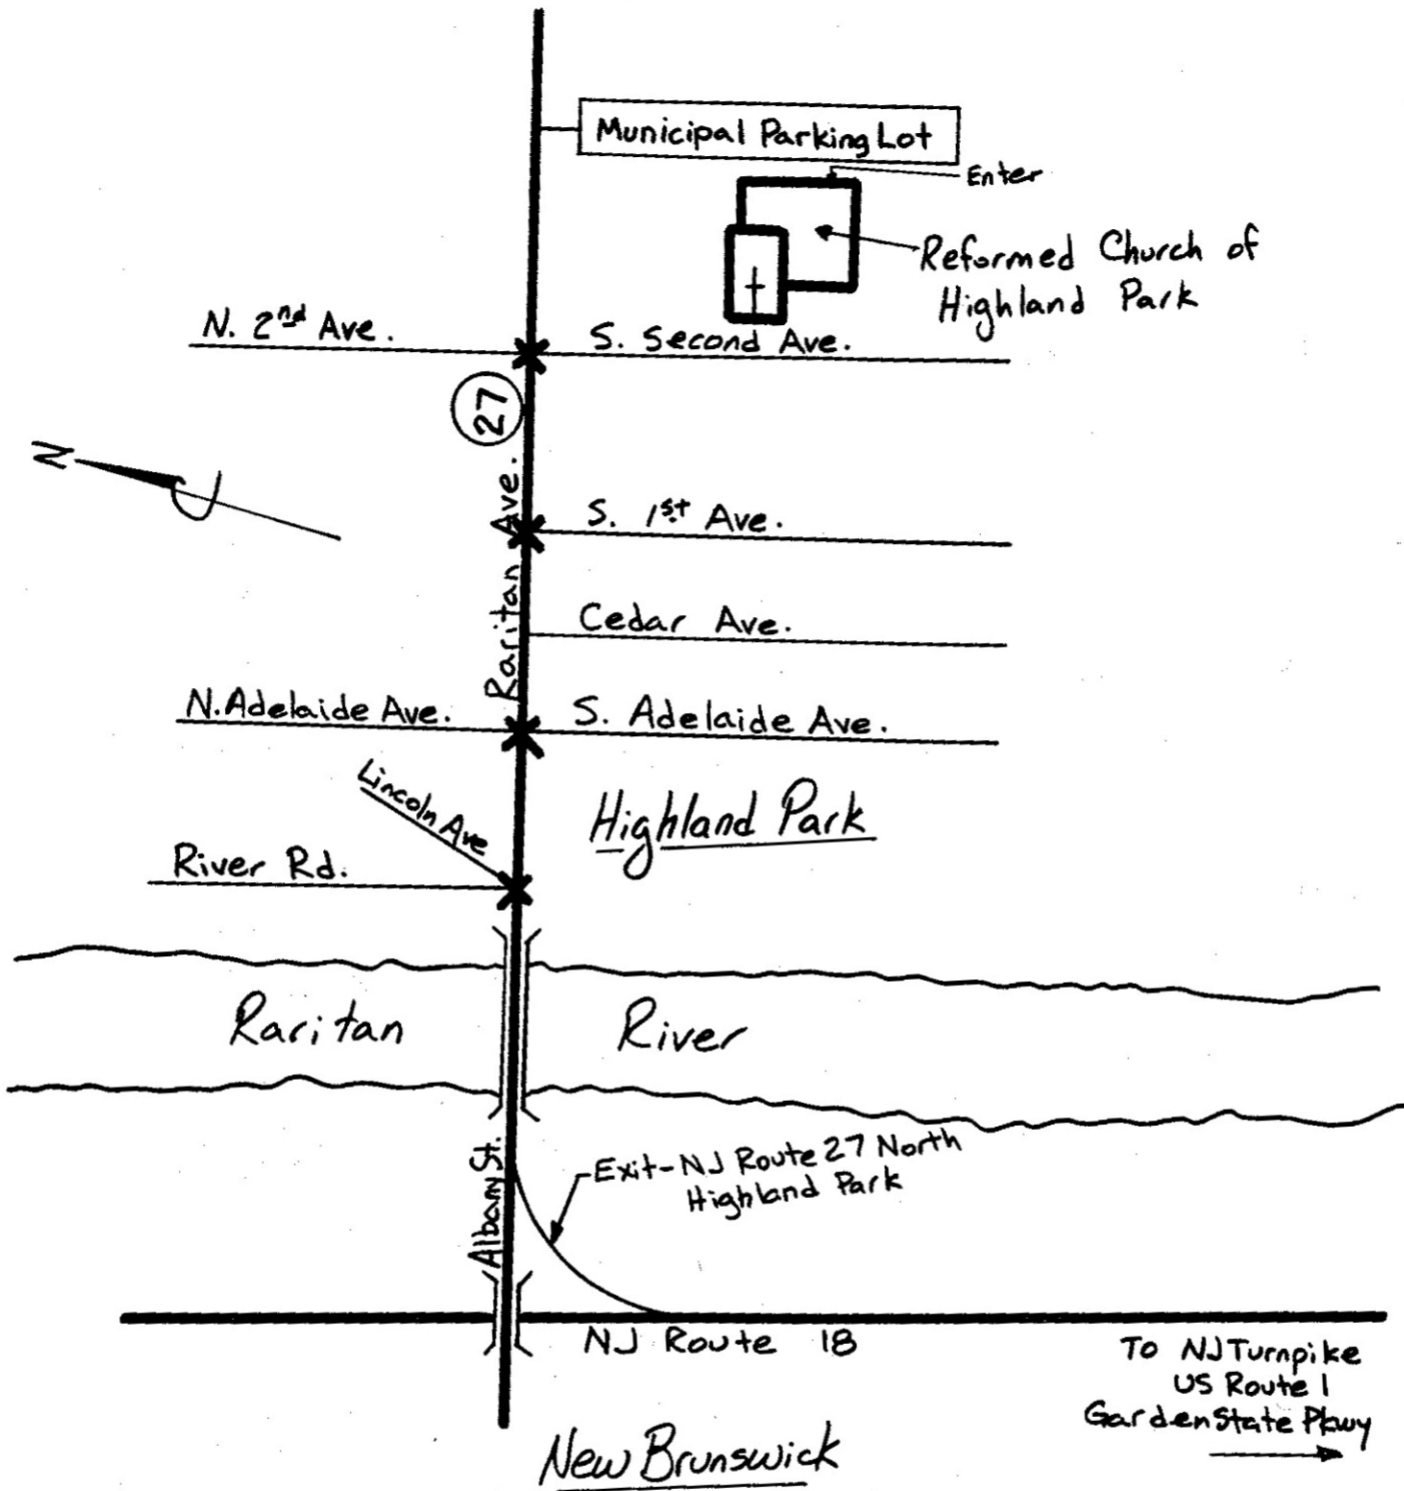 Municipal Parking Lot
Enter
Reformed Church of
Highland Park
N. 2nd Ave.
S. Second Ave.
27
N
Raritan Ave.
S. 1st Ave.
Cedar Ave.
N. Adelaide Ave.
S. Adelaide Ave.
Lincoln Ave
Highland Park
River Rd.
Raritan River
Albany St.
Exit - NJ Route 27 North
Highland Park
NJ Route 18
To NJ Turnpike
US Route 1
Garden State Pkwy
New Brunswick